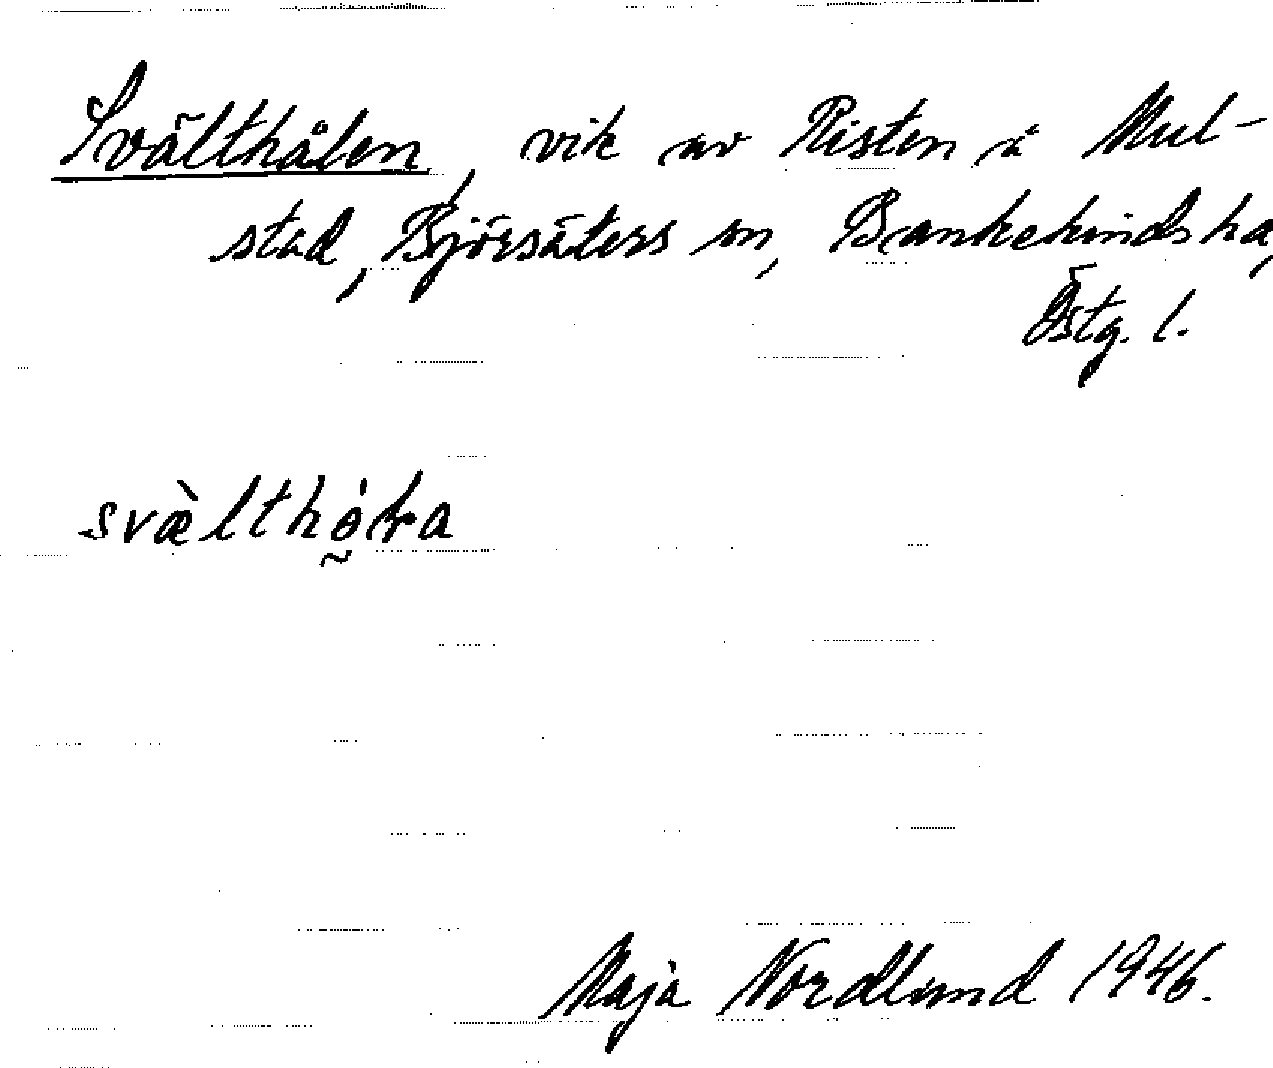 Svälthålen, vik av Risten å Mul-
stad, Björsäters sn, Bankekinds hd,
Östg. l.
svæ̀lthó̰ɫa
Maja Nordlund 1946.